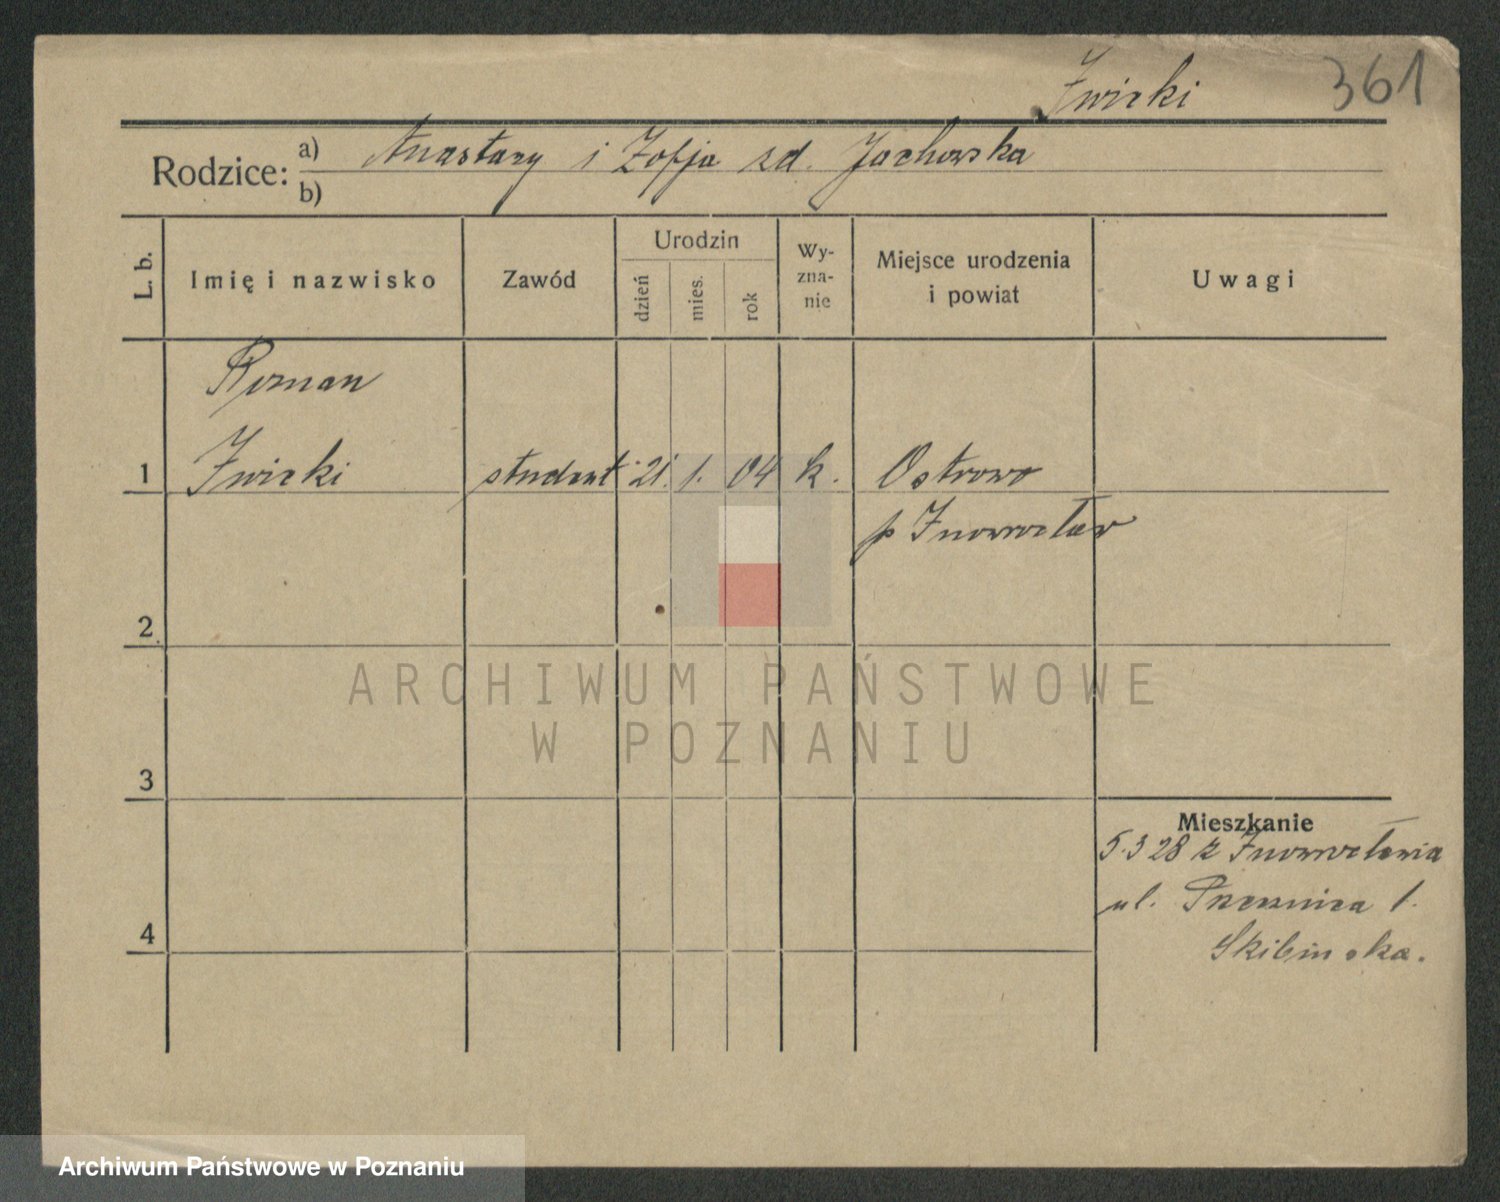 Żwirki 361
Rodzice: a) Anastazy i Zofja zd. Jachowska
b)
L. b. Imię i nazwisko Zawód Urodzin dzień mies. rok Wyznanie Miejsce urodzenia i powiat Uwagi
Roman
1 student 21. 1. 04 k. Ostrowo
p Inowrocław
2
3
Mieszkanie
5.3 28 z Inowrocławia
ul. 1.
4 Skibinska.
ARCHIWUM PAŃSTWOWE
W POZNANIU
Archiwum Państwowe w Poznaniu